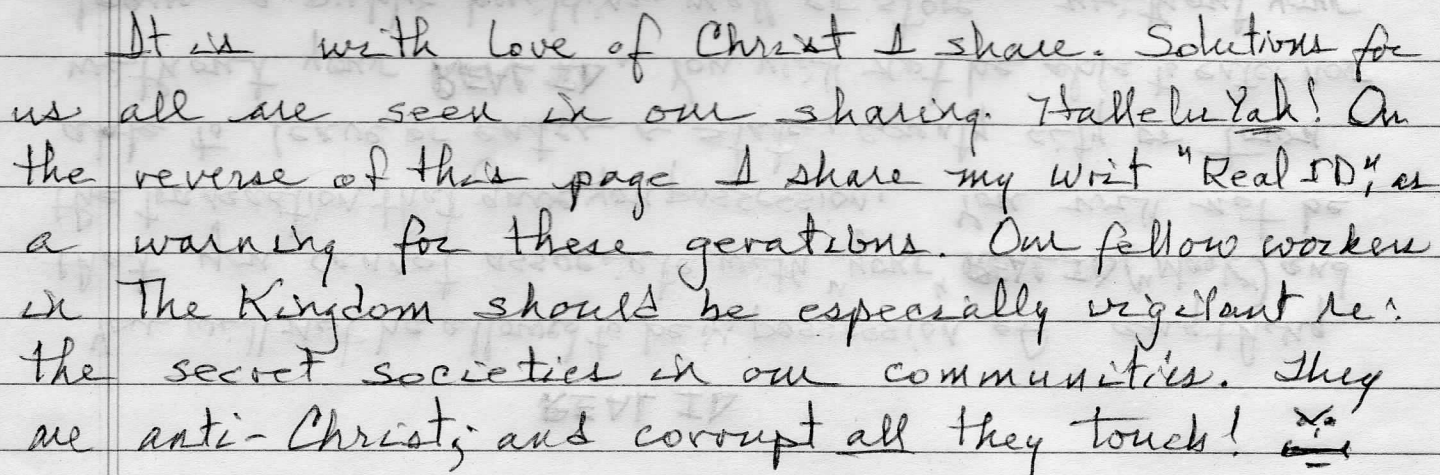 It is with love of Christ I share. Solutions for
us all are seen in our sharing. HalleluYah! On
the reverse of this page I share my writ "Real ID", as
a warning for these gerations. Our fellow workers
in The Kingdom should be especially vigilant re:
the secret societies in our communities. They
are anti-Christ; and corrupt all they touch!